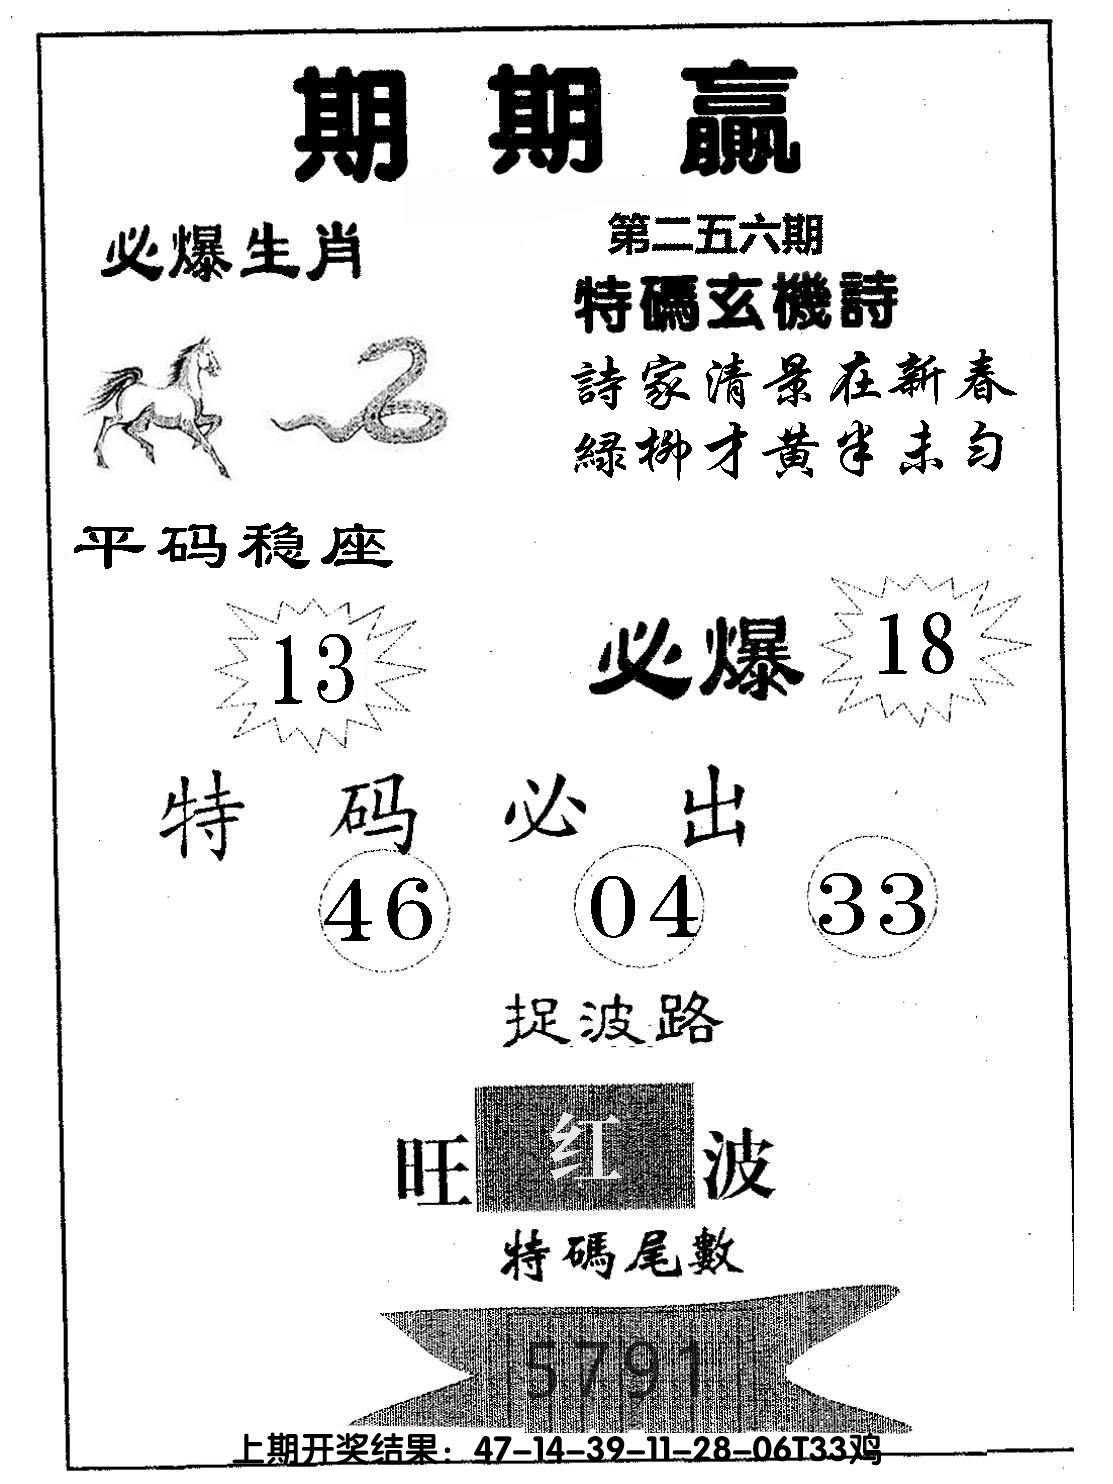 期期赢
必爆生肖
第二五六期
特碼玄機詩
詩家清景在新春
緑柳才黄半未匀
平码稳座
13
必爆
18
特码必出
46 04 33
捉波路
旺红波
特碼尾數
5791
上期开奖结果：47-14-39-11-28-06T33鸡